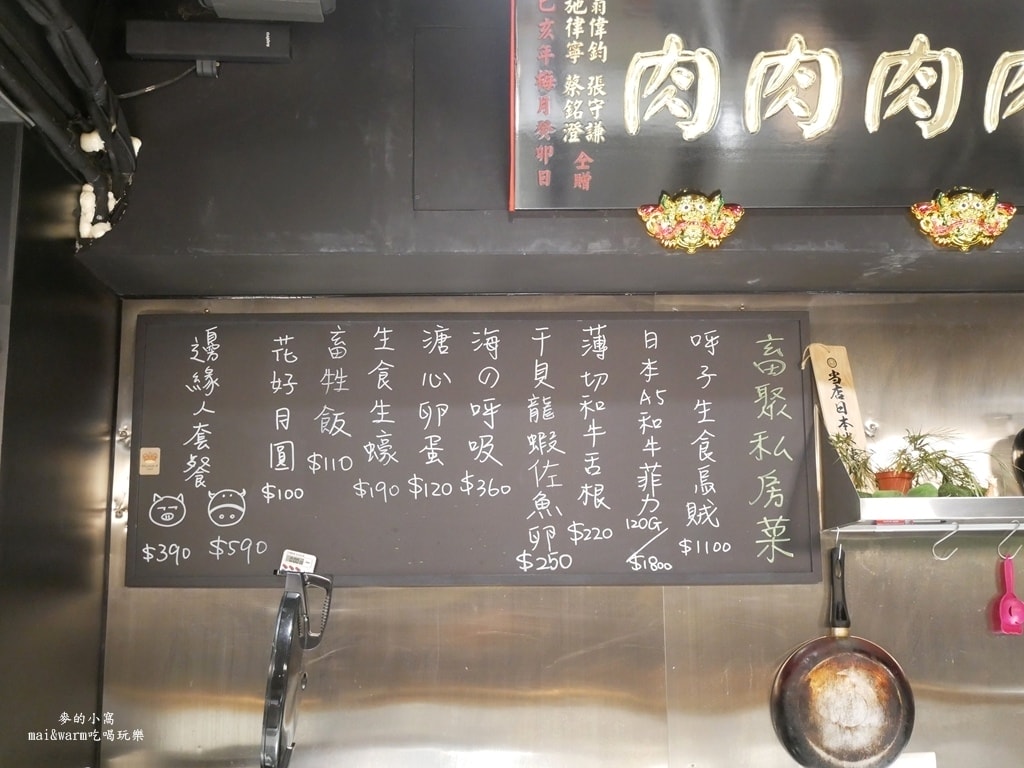 肉肉肉
翁偉鈞 張守謙
施律寧 蔡銘澄 仝贈
己亥年梅月癸卯日
畜聚私房菜
呼子生食烏賊 $1100
日本A5和牛菲力 120G/$1800
薄切和牛舌根 $220
干貝龍蝦佐魚卵 $250
海の呼吸 $360
溏心卵蛋 $120
生食生蠔 $190
畜牲飯 $110
花好月圓 $100
邊緣人套餐 $590 $390
当店日本
麥的小窩
mai&warm吃喝玩樂